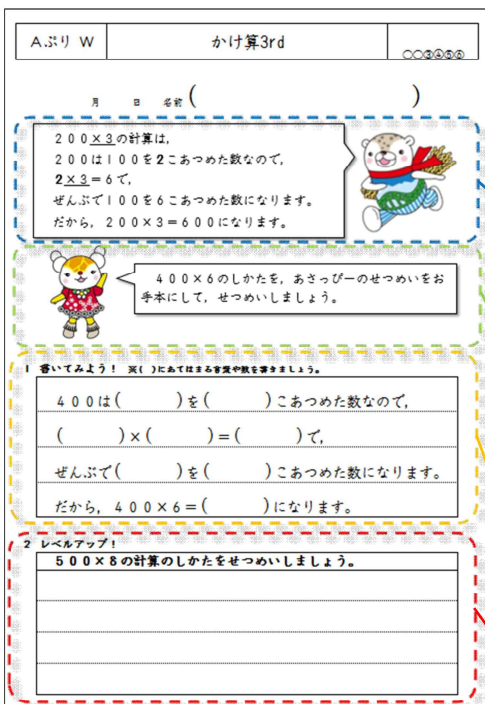 Aぷり W
かけ算3rd
○○③④⑤⑥
月 日 名前( )
200×3の計算は,
200は100を2こあつめた数なので,
2×3=6で,
ぜんぶで100を6こあつめた数になります。
だから,200×3=600になります。
400×6のしかたを,あさっぴーのせつめいをお
手本にして,せつめいしましょう。
1 書いてみよう! ※( )にあてはまる言葉や数を書きましょう。
400は( )を( )こあつめた数なので,
( )×( )=( )で,
ぜんぶで( )を( )こあつめた数になります。
だから,400×6=( )になります。
2 レベルアップ!
500×8の計算のしかたをせつめいしましょう。